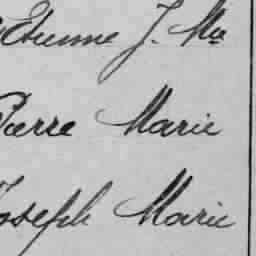 Etienne J. Mie
Pierre Marie
Joseph Marie